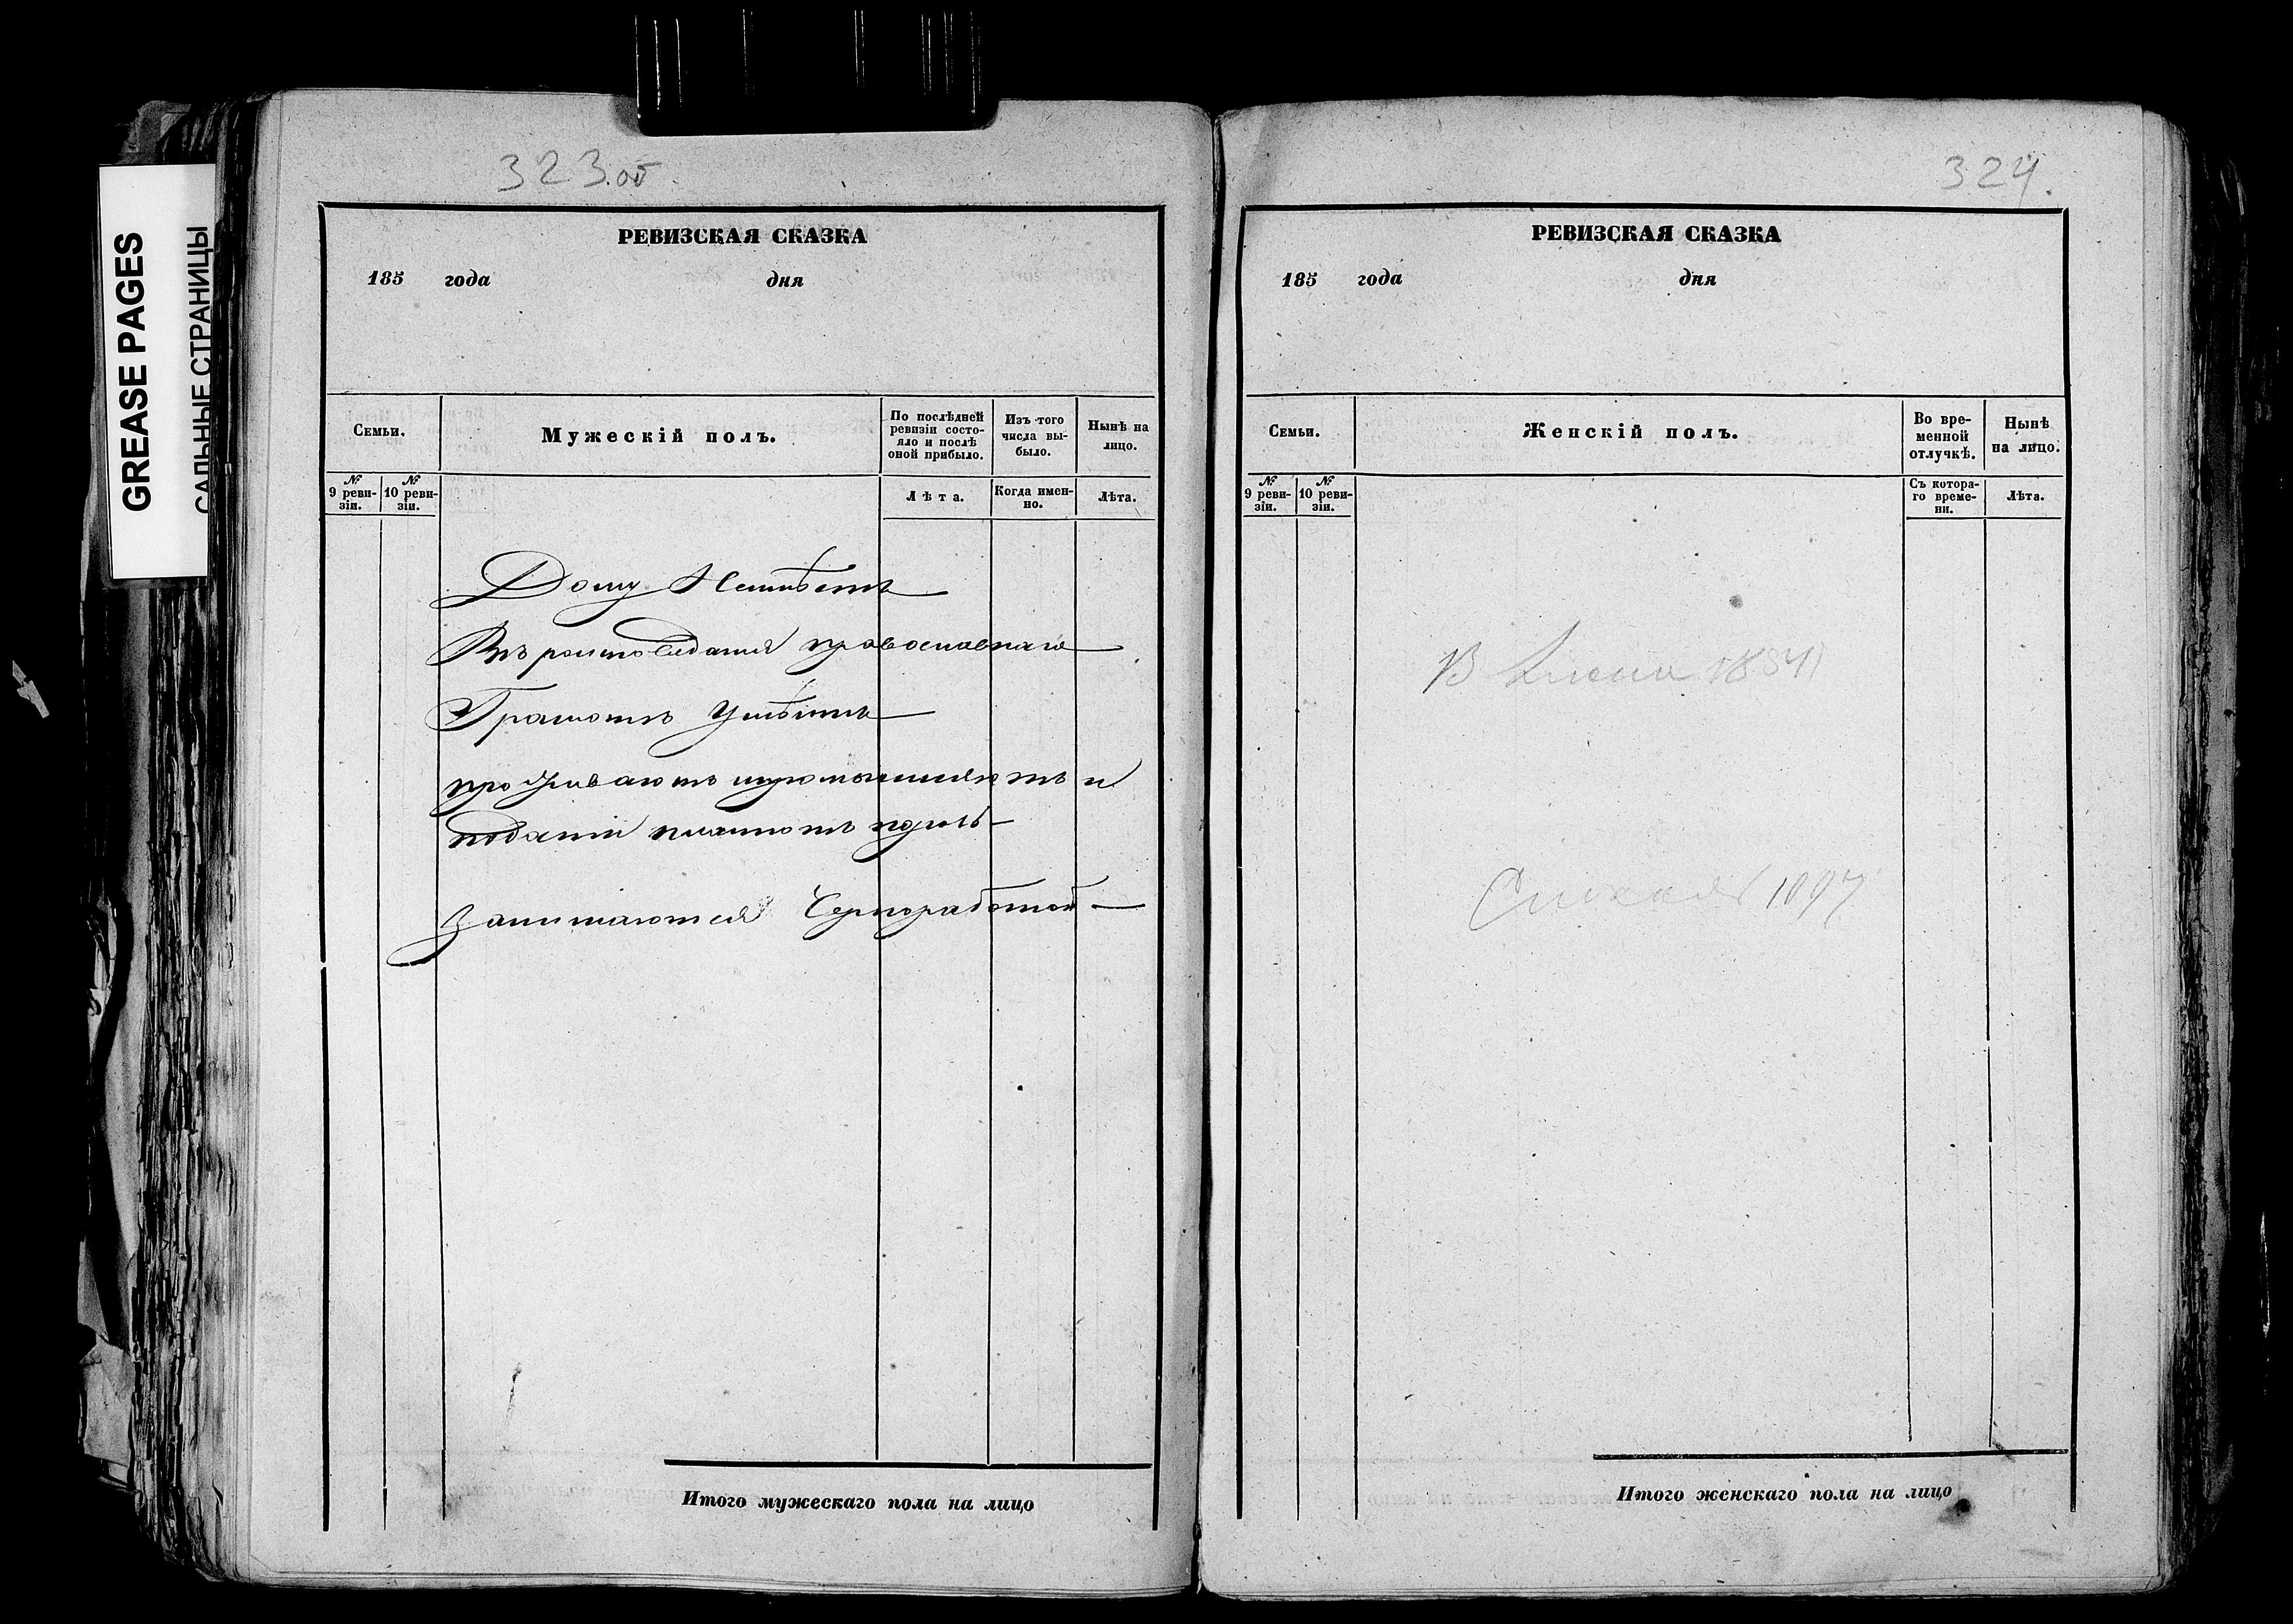 GREASE PAGES
САЛЬНЫЕ СТРАНИЦЫ
323.об.
РЕВИЗСКАЯ СКАЗКА
185 года дня
Семьи.
Мужескій полъ.
По послѣдней ревизіи состо-
яло и послѣ
оной прибыло.
Изъ того
числа вы-
было.
Нынѣ на
лицо.
№
9 реви-
зіи.
№
10 реви-
зіи.
Лѣта.
Когда имен-
но.
Лѣта.
Дому Неимѣетъ
Вѣроисповедания православнаго
Грамотѣ Умѣютъ
проживаютъ и
подати платютъ
Занимаются Черноработой
Итого мужескаго пола на лицо
324.
РЕВИЗСКАЯ СКАЗКА
185 года дня
Семьи.
Женскій полъ.
Во вре-
менной
отлучкѣ.
Нынѣ
на лицо.
№
9 реви-
зіи.
№
10 реви-
зіи.
Съ котора-
го време-
ни.
Лѣта.
В
Итого женскаго пола на лицо